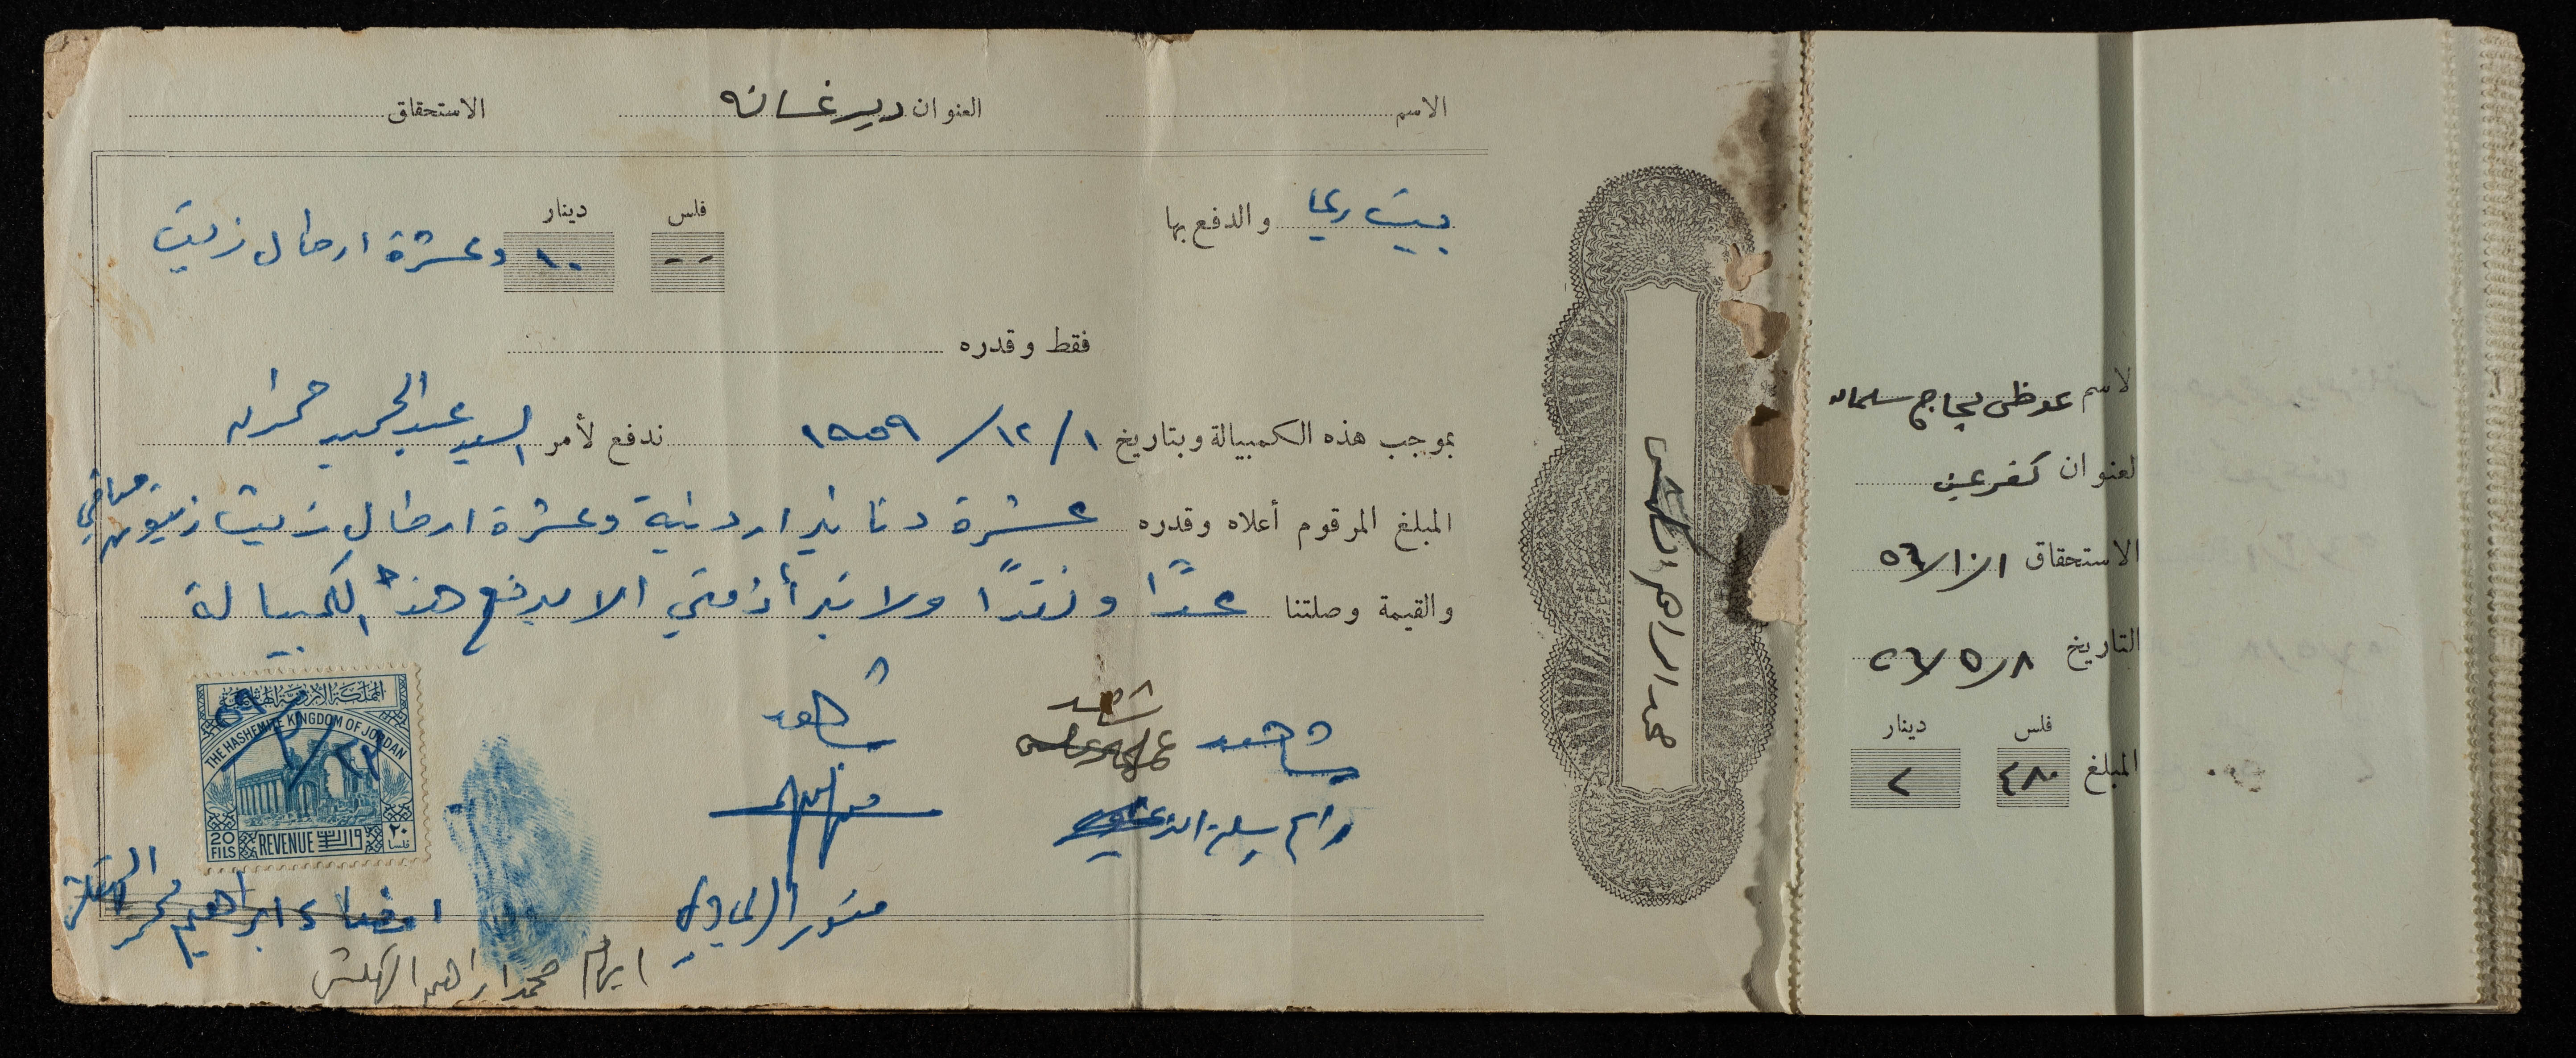 الاسم العنوان دير غسانه الاستحقاق
بيت ريما والدفع بها
فلس دينار
-- ١٠ وعشرة ارطال زيت
فقط وقدره
بموجب هذه الكمبيالة وبتاريخ ١/١٢/١٩٥٩ ندفع لأمر السيد عبد الحميد حمدان
المبلغ المرقوم أعلاه وقدره عشرة دنانير اردنية وعشرة ارطال زيت زيتون صافي
والقيمة وصلتنا عدًا ونقدًا ولا تبرأ ذمتي الا بدفع هذه الكمبيالة
شاهد شاهد شاهد
منور الريماوي
المملكة الأردنية الهاشمية
THE HASHEMITE KINGDOM OF JORDAN
٢٢/٣/٥٩
20 FILS REVENUE واردات ٢٠ فلسا
امضاء ابراهيم محمد
ابهام محمد ابراهيم
محمد ابراهيم
الاسم عوض حجاج سلمان
العنوان كفرعين
الاستحقاق ١/١٠/٥٦
التاريخ ٨/٥/٥٦
فلس دينار
المبلغ ٤٨٠ ٢